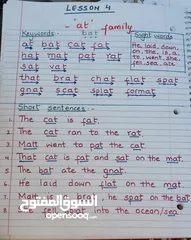 LESSON 4
'at' family
Keywords bat
Sight words
at bat cat fat
hat mat pat rat
sat vat
He, laid, down,
on, the, is, a
to, went, she
fell, sea, ate
that brat chat flat spat
gnat scat splat format
Short sentences
1. The cat is fat.
2. The cat ran to the rat.
3. Matt went to pat the cat.
4. That cat is fat and sat on the mat.
5. The bat ate the gnat.
6. He laid down flat on the mat.
7. Matt he spat on the bat
8. fell into the ocean/sea
السوق المفتوح
opensooq.com